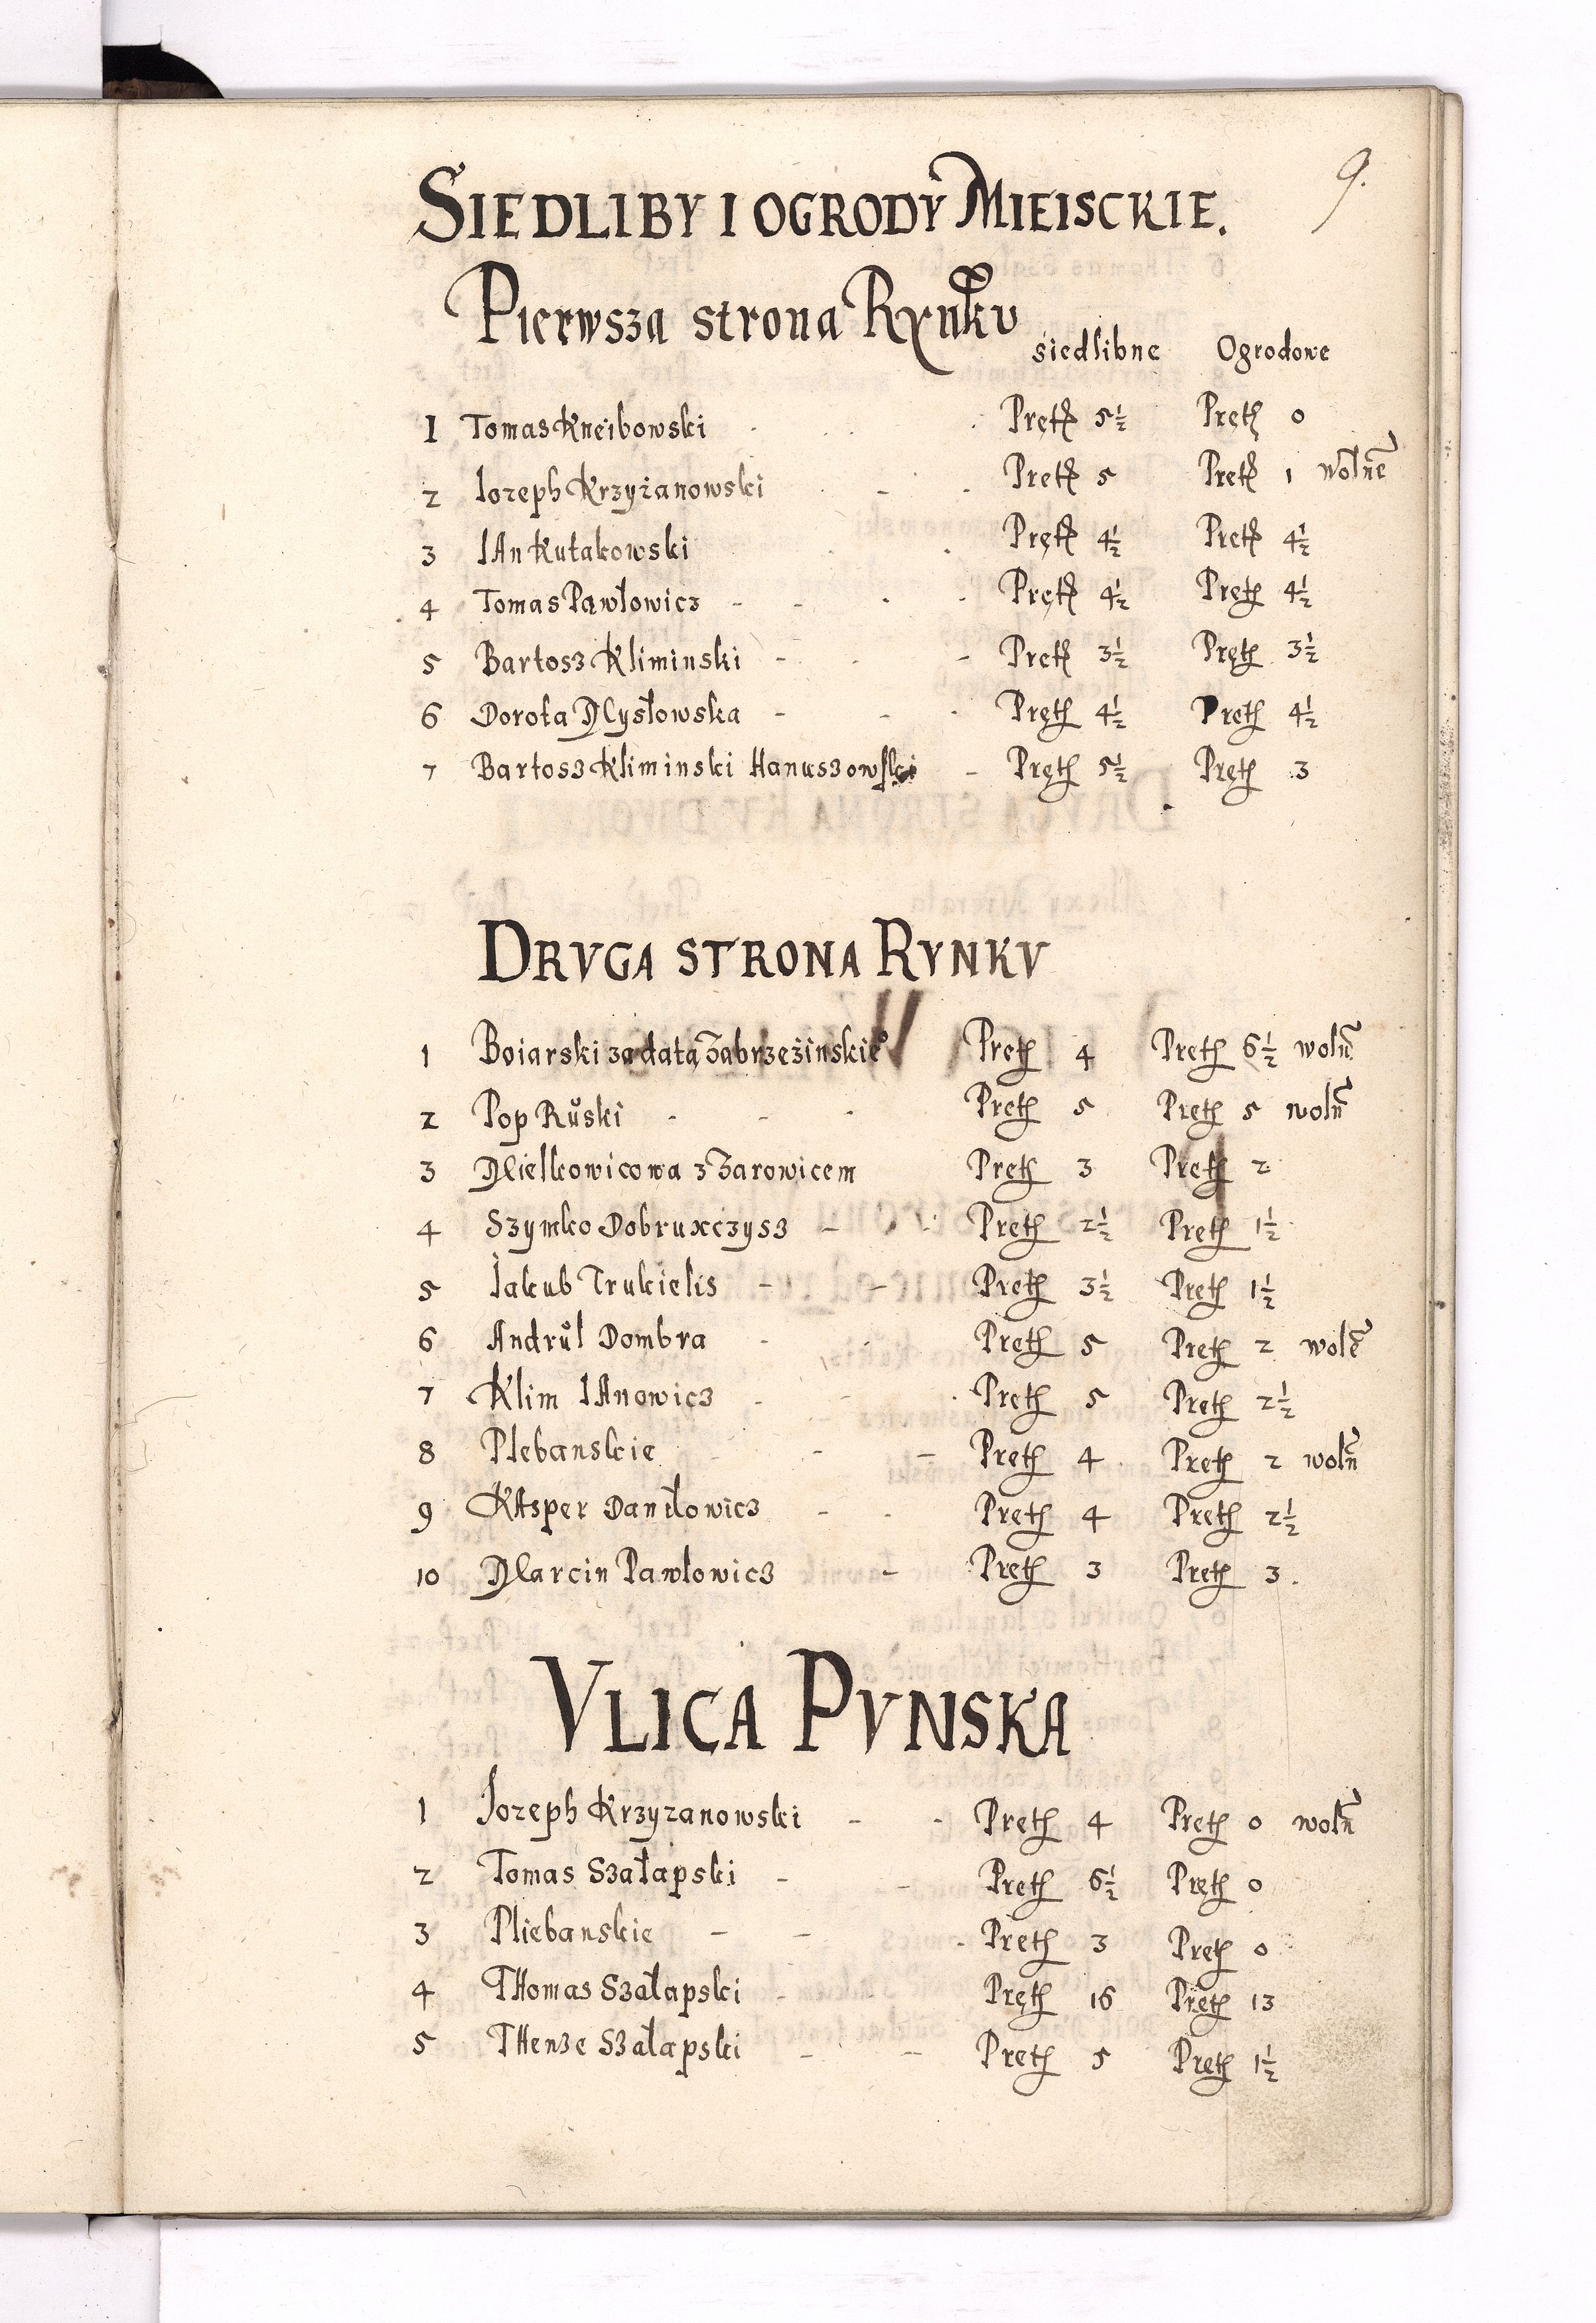 9.
SIEDLIBY I OGRODY MIEISCKIE.
Pierwsza strona Rynku
siedlibne Ogrodowe
1 Tomas Kneibowski Pręth 5½ Pręth 0
2 Iozeph Krzyżanowski Pręth 5 Pręth 1 wolne
3 IAn Kutakowski Pręth 4½ Pręth 4½
4 Tomas Pawłowicz - - Pręth 4½ Pręth 4½
5 Bartosz Kliminski - - Pręth 3½ Pręth 3½
6 Dorota Mysłowska - - Pręth 4½ Pręth 4½
7 Bartosz Kliminski Hanuszowski - Pręth 5½ Pręth 3
DRVGA STRONA RYNKV
1 Boiarski za datą Zabrzeżinskie° Pręth 4 Pręth 6½ woln
2 Pop Ruski - - Pręth 5 Pręth 5 woln
3 Mielkowicowa z Zarowicem Pręth 3 Pręth 2
4 Szymko Dobruxczysz - Pręth 2½ Pręth 1½
5 Iakub Trukielis - - Pręth 3½ Pręth 1½
6 Andrul Dombra - Pręth 5 Pręth 2 wolē
7 Klim IAnowicz - - Pręth 5 Pręth 2½
8 Plebanskie - - Pręth 4 Pręth 2 woln
9 KAsper Daniłowicz - - Pręth 4 Pręth 2½
10 Marcin Pawłowicz - Pręth 3 Pręth 3.
VLICA PVNSKA
1 Iozeph Krzyzanowski - - Pręth 4 Pręth 0 woln
2 Tomas Szałapski - - Pręth 6½ Pręth 0
3 Pliebanskie - - Pręth 3 Pręth 0
4 THomas Szałapski - Pręth 16 Pręth 13
5 THenze Szałapski - - Pręth 5 Pręth 1½